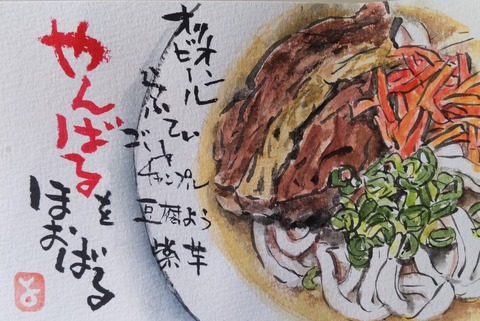 やんばるを
ほおばる
オリオン
ビール
らふてい
ごーや
チャンプル
豆腐よう
紫芋